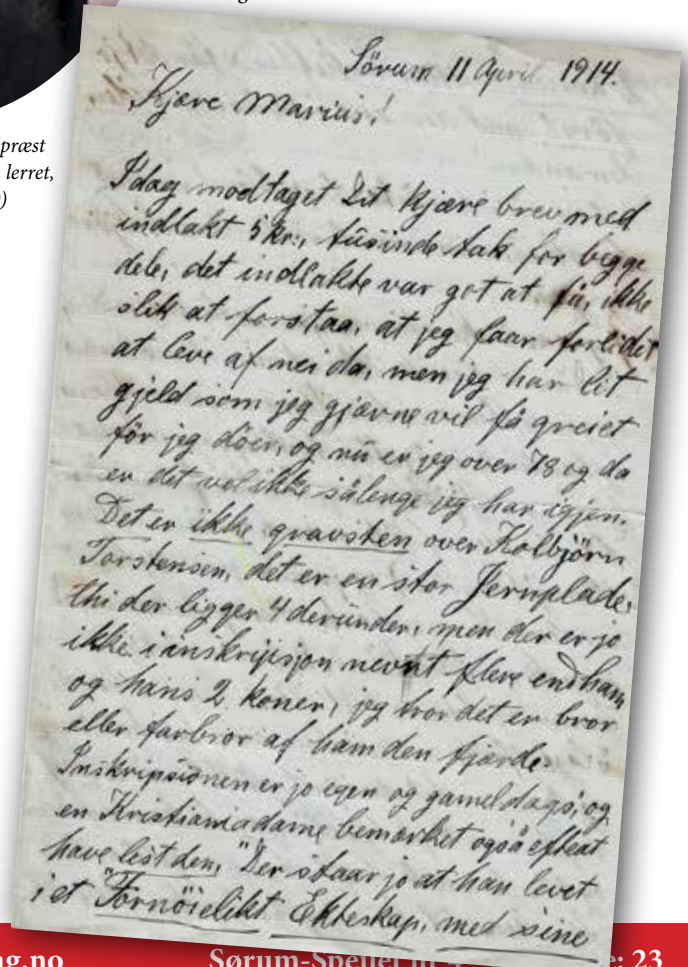 præst
lerret,
Sörum 11 April 1914.
Kjære Marius!
Idag modtaget Dit kjære brev med
indlakt 5 kr., tusinde tak for begge
dele, det indlakte var got at få, ikke
slik at forstaa, at jeg faar forlidet
at leve af nei da, men jeg har lit
gjeld som jeg gjærne vil få greiet
för jeg döer, og nu er jeg over 78 og da
er det vel ikke sålenge jeg har igjen.
Det er ikke gravsten over Kolbjörn
Torstensen, det er en stor Jernplade,
thi der ligger 4 derunder, men der er jo
ikke i inskripsjon nevnt flere end ham
og hans 2 koner, jeg tror det er bror
eller farbror af ham den fjærde.
Inskripsionen er jo egen og gameldags, og
en Kristianiadame bemærket også efterat
have lest den, "Der staar jo at han levet
i et "Fornöielikt Ekteskap, med sine
ng.no
Sørum-Spellet nr 23